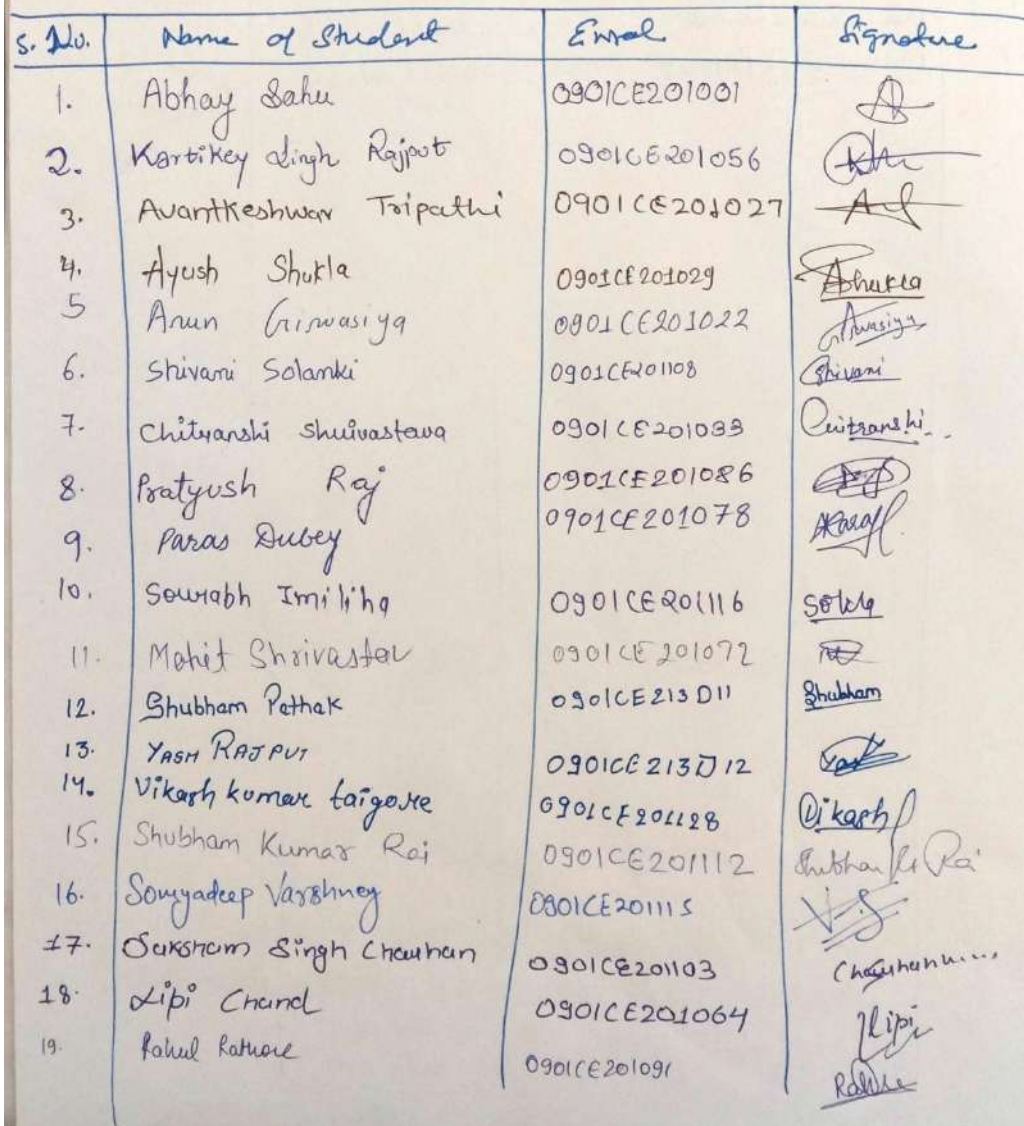 S. No. Name of Student Enrol Signature
1. Abhay Sahu 0901CE201001
2. Kartikey Singh Rajput 0901CE201056
3. Avantkeshwar Tripathi 0901CE201027
4. Ayush Shukla 0901CE201029 AShukla
5 Arun Girwasiya 0901CE201022 Girwasiya
6. Shivani Solanki 0901CE201108 Shivani
7. Chitranshi Shrivastava 0901CE201033 Chitranshi
8. Pratyush Raj 0901CE201086
9. Paras Dubey 0901CE201078 Paras
10. Sourabh Imiliha 0901CE201116
11. Mohit Shrivastav 0901CE201072
12. Shubham Pathak 0901CE213D11 Shubham
13. YASH RAJPUT 0901CE213D12 Yash
14. Vikash kumar taigore 0901CE201128 Vikash
15. Shubham Kumar Rai 0901CE201112 Shubham Kr Rai
16. Somyadeep Varshney 0901CE201115
17. Saksham Singh Chauhan 0901CE201103 Chauhan
18. Lipi Chand 0901CE201064 Lipi
19. Rahul Rathore 0901CE201091